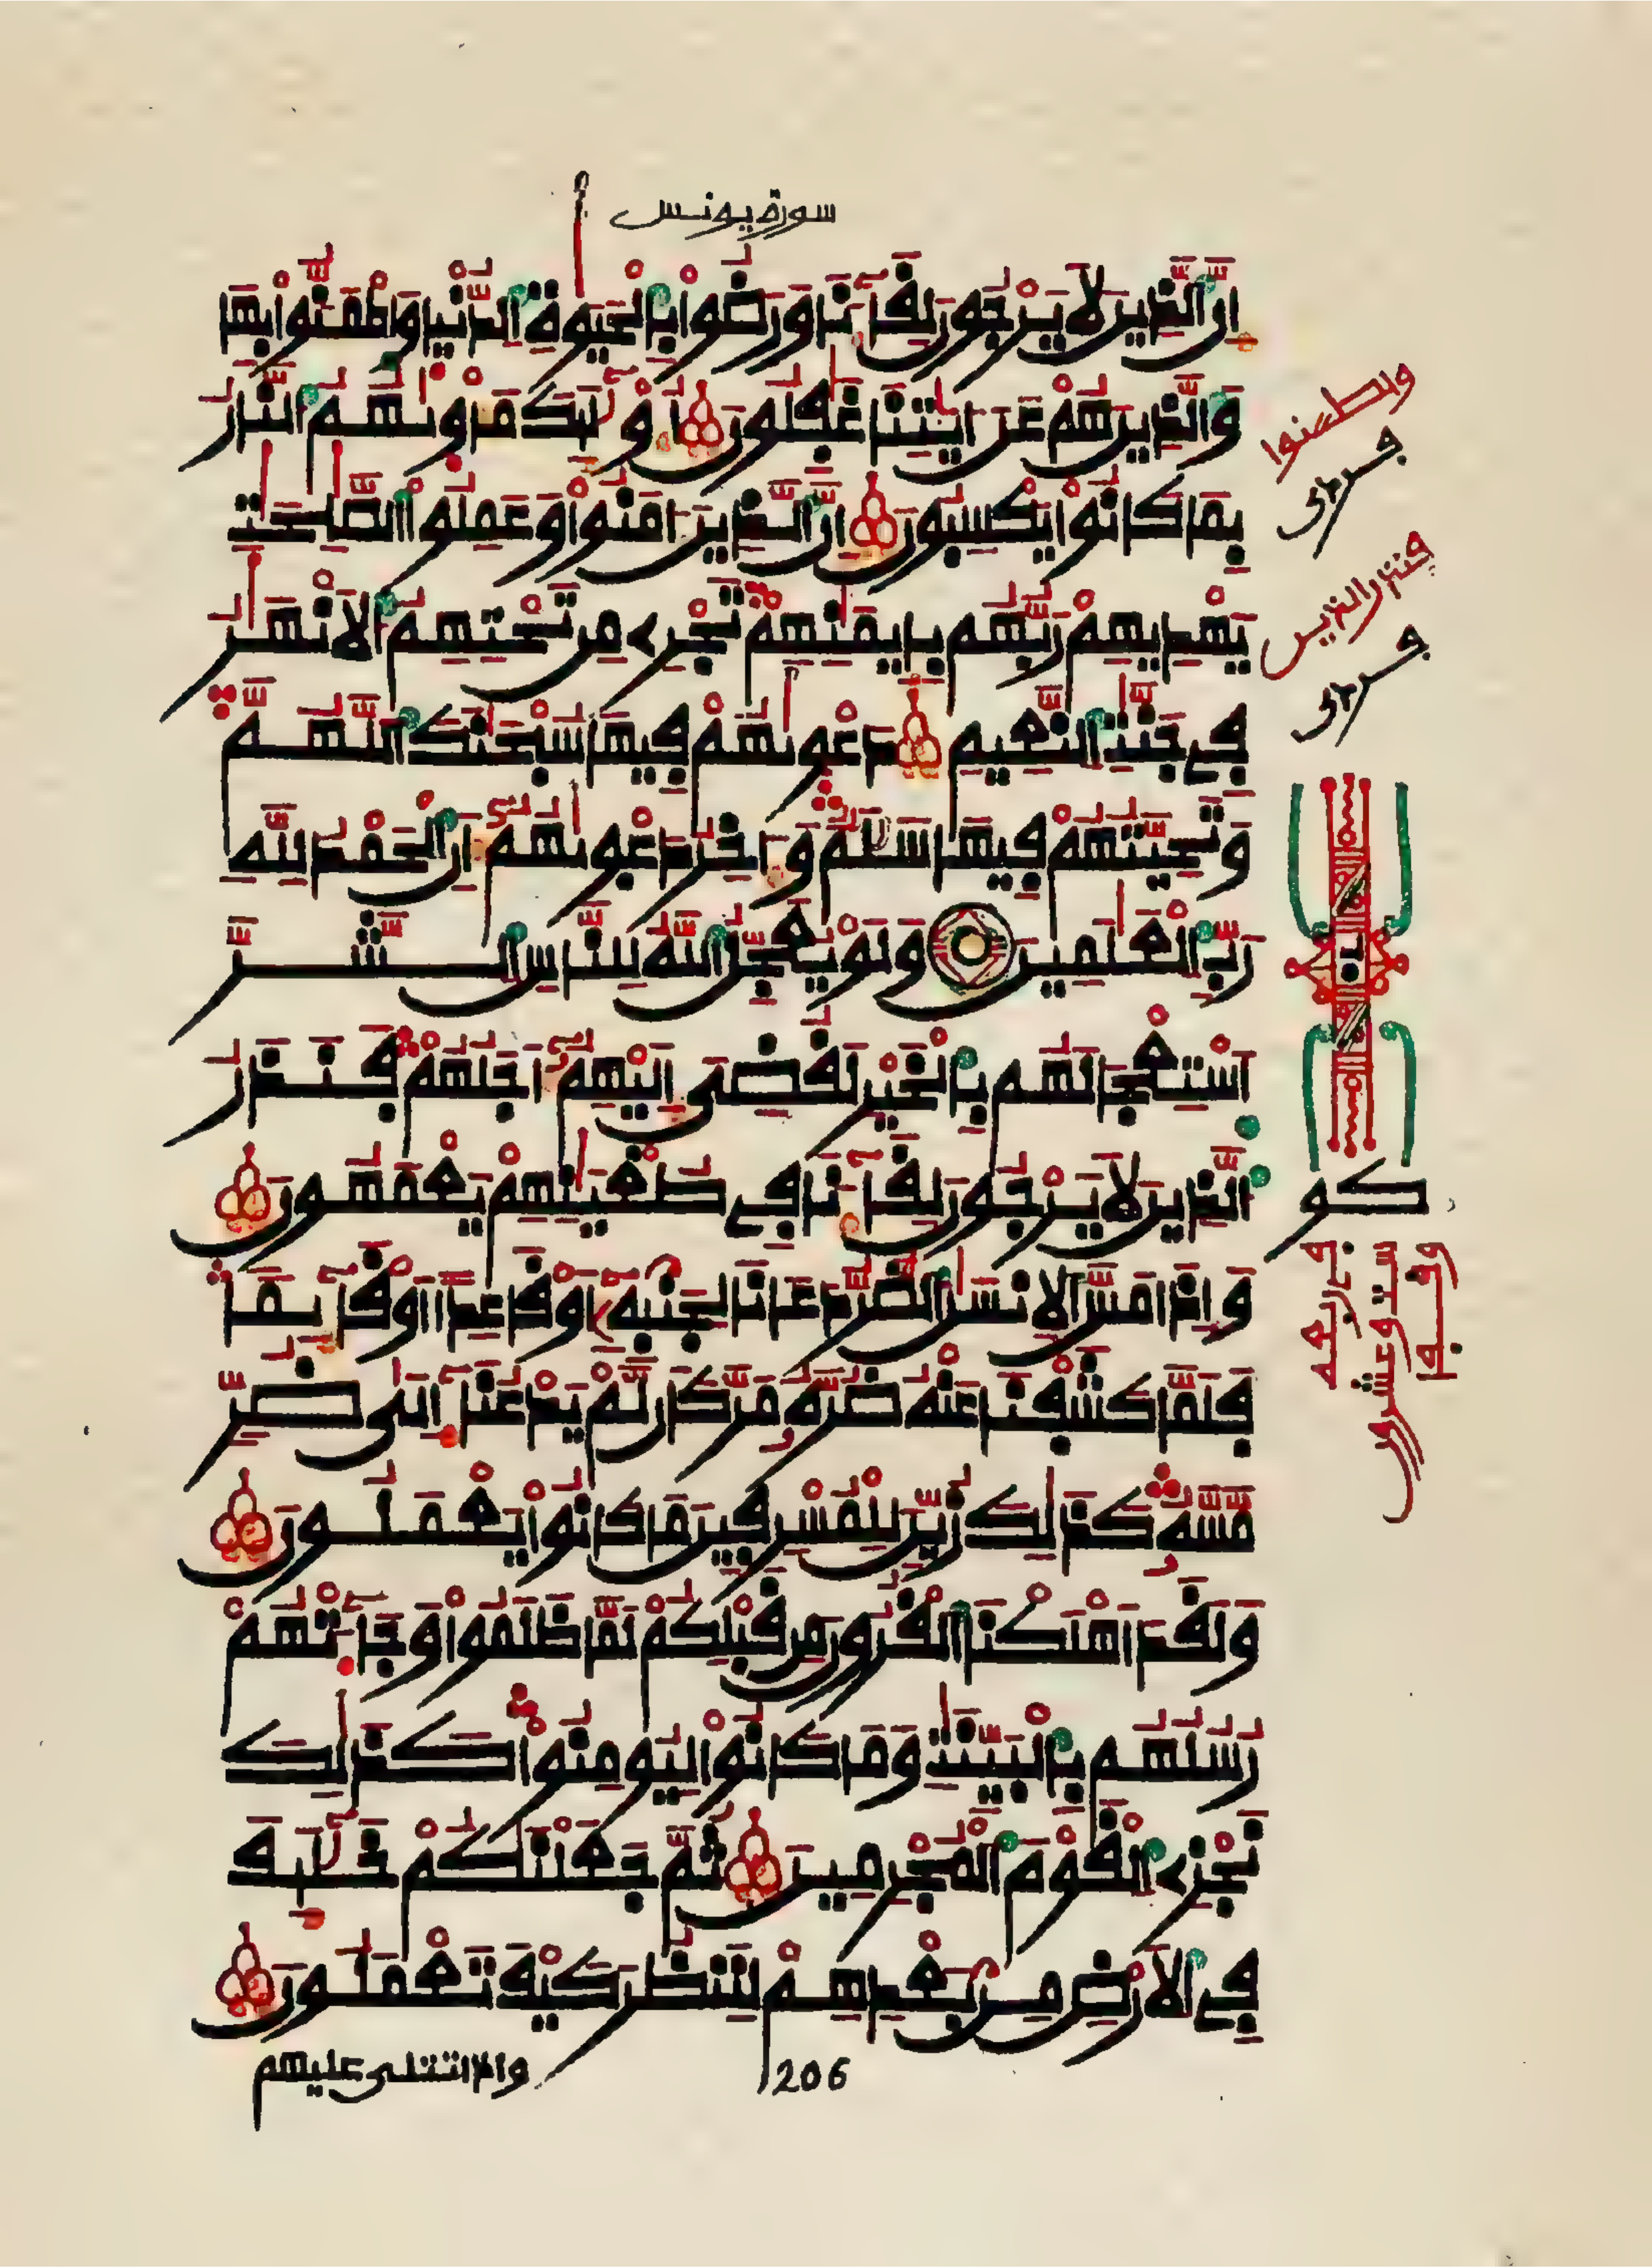 سورة يونس
إِنَّ ٱلذِينَ لَا يَرْجُونَ لِقَآءَنَا وَرَضُوا۟ بِٱلْحَيَوٰةِ ٱلدُّنْيَا وَٱطْمَأَنُّوا۟ بِهَا
وَٱلذِينَ هُمْ عَنَ ـٰايَٰتِنَا غَٰفِلُونَ أُو۟لَٰٓئِكَ مَأْوَىٰهُمُ ٱلنَّارُ
بِمَا كَانُوا۟ يَكْسِبُونَ إِنَّ ٱلذِينَ ءَامَنُوا۟ وَعَمِلُوا۟ ٱلصَّٰلِحَٰتِ
يَهْدِيهِمْ رَبُّهُم بِإِيمَٰنِهِمْ تَجْرِے مِن تَحْتِهِمُ ٱلْأَنْهَٰرُ
فِے جَنَّٰتِ ٱلنَّعِيمِ دَعْوَىٰهُمْ فِيهَا سُبْحَٰنَكَ ٱللَّهُمَّ
وَتَحِيَّتُهُمْ فِيهَا سَلَٰمٌ وَءَاخِرُ دَعْوَىٰهُمُ أَنِ ٱلْحَمْدُ لِلهِ
رَبِّ ٱلْعَٰلَمِينَ وَلَوْ يُعَجِّلُ ٱللَّهُ لِلنَّاسِ ٱلشَّرَّ
ٱسْتِعْجَالَهُم بِٱلْخَيْرِ لَقُضِىَ إِلَيْهِمُ أَجَلُهُمْ فَنَذَرُ
ٱلذِينَ لَا يَرْجُونَ لِقَآءَنَا فِے طُغْيَٰنِهِمْ يَعْمَهُونَ
وَإِذَا مَسَّ ٱلْإِنسَٰنَ ٱلضُّرُّ دَعَانَا لِجَنۢبِهِۦٓ أَوْ قَاعِدًا أَوْ قَآئِمًا
فَلَمَّا كَشَفْنَا عَنْهُ ضُرَّهُۥ مَرَّ كَأَن لَّمْ يَدْعُنَآ إِلَىٰ ضُرٍّ
مَّسَّهُۥ كَذَٰلِكَ زُيِّنَ لِلْمُسْرِفِينَ مَا كَانُوا۟ يَعْمَلُونَ
وَلَقَدَ أَهْلَكْنَا ٱلْقُرُونَ مِن قَبْلِكُمْ لَمَّا ظَلَمُوا۟ وَجَآءَتْهُمْ
رُسُلُهُم بِٱلْبَيِّنَٰتِ وَمَا كَانُوا۟ لِيُومِنُوا۟ كَذَٰلِكَ
نَجْزِے ٱلْقَوْمَ ٱلْمُجْرِمِينَ ثُمَّ جَعَلْنَٰكُمْ خَلَٰٓئِفَ
فِے ٱلْأَرْضِ مِنۢ بَعْدِهِمْ لِنَنظُرَ كَيْفَ تَعْمَلُونَ
واذا تتلى عليهم
206